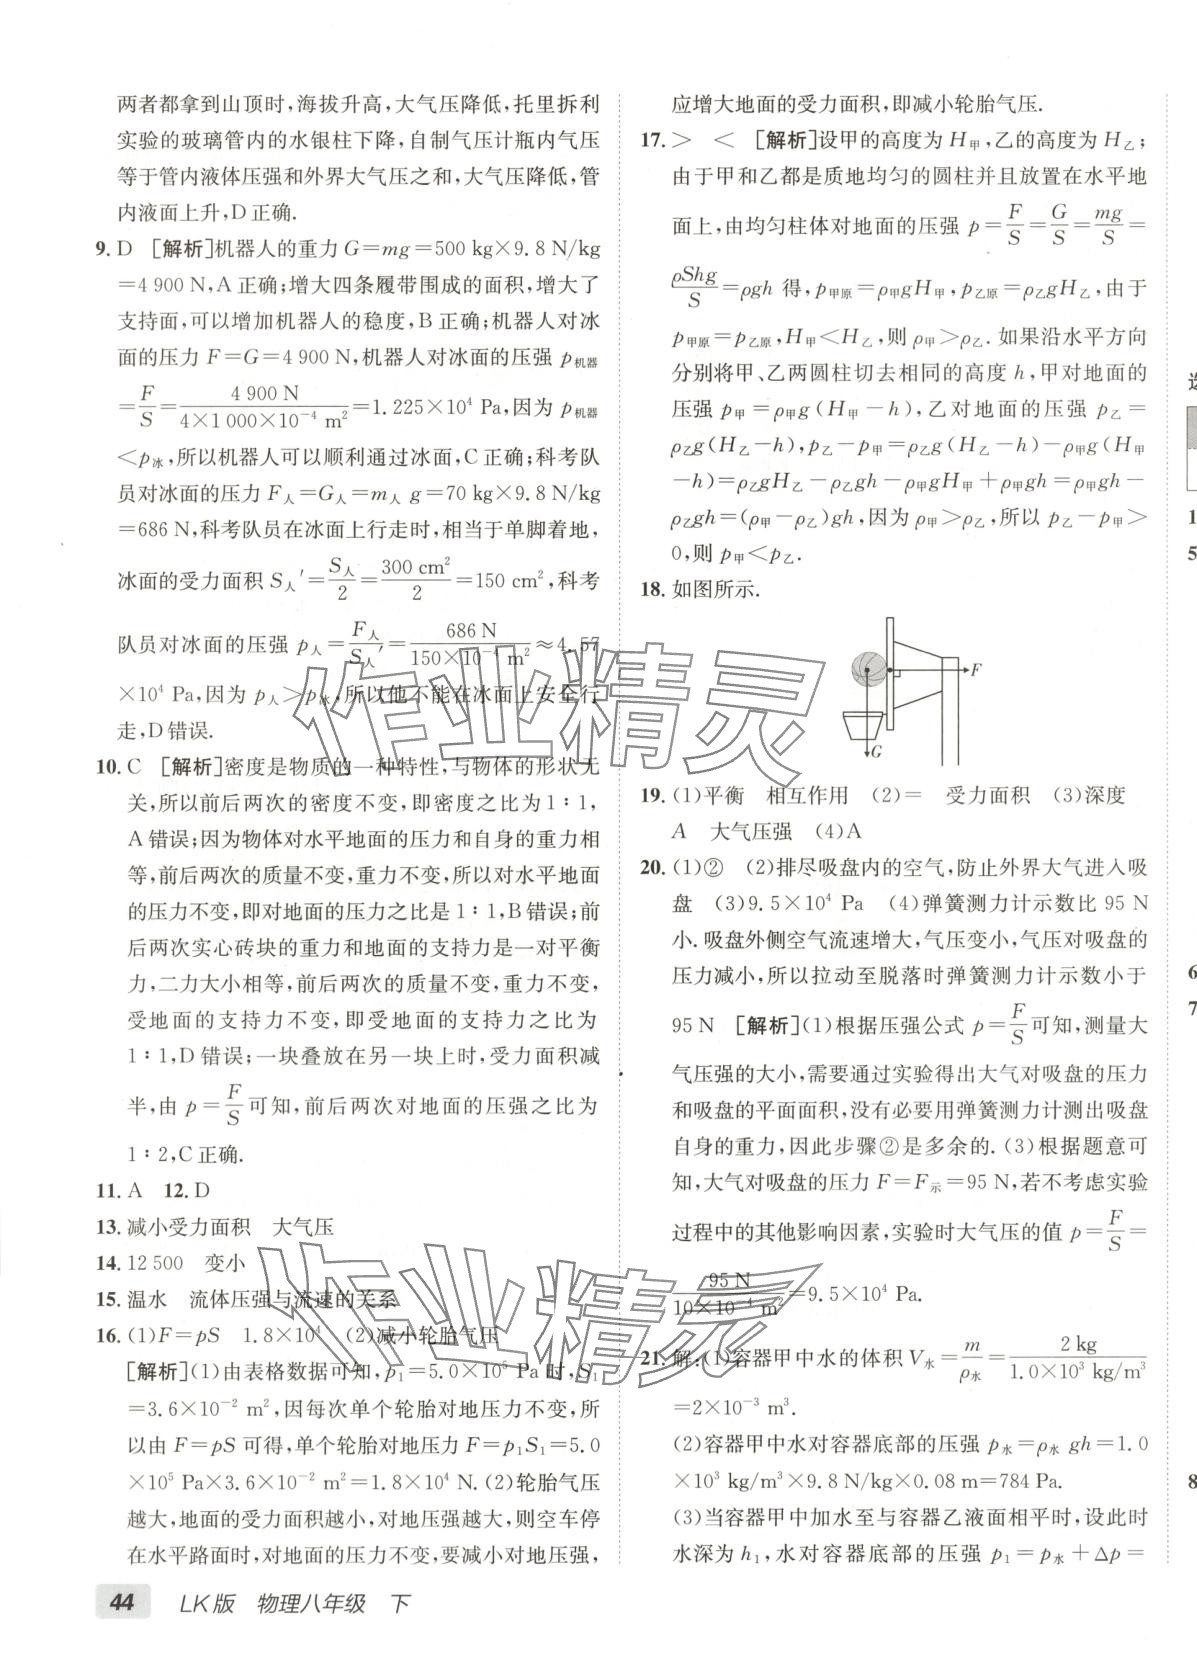 两者都拿到山顶时,海拔升高,大气压降低,托里拆利
实验的玻璃管内的水银柱下降,自制气压计瓶内气压
等于管内液体压强和外界大气压之和,大气压降低,管
内液面上升,D正确.
9. D [解析]机器人的重力G=mg=500 kg×9.8 N/kg
=4 900 N,A正确;增大四条履带围成的面积,增大了
支持面,可以增加机器人的稳度,B正确;机器人对冰
面的压力F=G=4 900 N,机器人对冰面的压强 p机器
=F/S=4 900 N/(4×1 000×10⁻⁴ m²)=1.225×10⁴ Pa,因为 p机器
<p冰,所以机器人可以顺利通过冰面,C正确;科考队
员对冰面的压力F人=G人=m人 g=70 kg×9.8 N/kg
=686 N,科考队员在冰面上行走时,相当于单脚着地,
冰面的受力面积 S人′=S人/2=300 cm²/2=150 cm²,科考
队员对冰面的压强 p人=F人/S人′=686 N/(150×10⁻⁴ m²)≈4.57
×10⁴ Pa,因为 p人>p冰,所以他不能在冰面上安全行
走,D错误.
10. C [解析]密度是物质的一种特性,与物体的形状无
关,所以前后两次的密度不变,即密度之比为1∶1,
A错误;因为物体对水平地面的压力和自身的重力相
等,前后两次的质量不变,重力不变,所以对水平地面
的压力不变,即对地面的压力之比是1∶1,B错误;前
后两次实心砖块的重力和地面的支持力是一对平衡
力,二力大小相等,前后两次的质量不变,重力不变,
受地面的支持力不变,即受地面的支持力之比为
1∶1,D错误;一块叠放在另一块上时,受力面积减
半,由 p=F/S可知,前后两次对地面的压强之比为
1∶2,C正确.
11. A 12. D
13. 减小受力面积 大气压
14. 12 500 变小
15. 温水 流体压强与流速的关系
16. (1)F=pS 1.8×10⁴ (2)减小轮胎气压
[解析](1)由表格数据可知,p₁=5.0×10⁵ Pa时,S₁
=3.6×10⁻² m²,因每次单个轮胎对地压力不变,所
以由F=pS可得,单个轮胎对地压力F=p₁S₁=5.0
×10⁵ Pa×3.6×10⁻² m²=1.8×10⁴ N.(2)轮胎气压
越大,地面的受力面积越小,对地压强越大,则空车停
在水平路面时,对地面的压力不变,要减小对地压强,
44 LK版 物理八年级 下
应增大地面的受力面积,即减小轮胎气压.
17. > < [解析]设甲的高度为H甲,乙的高度为H乙;
由于甲和乙都是质地均匀的圆柱并且放置在水平地
面上,由均匀柱体对地面的压强 p=F/S=G/S=mg/S=
ρShg/S=ρgh 得,p甲原=ρ甲gH甲,p乙原=ρ乙gH乙,由于
p甲原=p乙原,H甲<H乙,则 ρ甲>ρ乙.如果沿水平方向
分别将甲、乙两圆柱切去相同的高度 h,甲对地面的
压强 p甲=ρ甲g(H甲-h),乙对地面的压强 p乙=
ρ乙g(H乙-h),p乙-p甲=ρ乙g(H乙-h)-ρ甲g(H甲
-h)=ρ乙gH乙-ρ乙gh-ρ甲gH甲+ρ甲gh=ρ甲gh-
ρ乙gh=(ρ甲-ρ乙)gh,因为 ρ甲>ρ乙,所以 p乙-p甲>
0,则 p甲<p乙.
18. 如图所示.
F
G
19. (1)平衡 相互作用 (2)= 受力面积 (3)深度
A 大气压强 (4)A
20. (1)② (2)排尽吸盘内的空气,防止外界大气进入吸
盘 (3)9.5×10⁴ Pa (4)弹簧测力计示数比95 N
小.吸盘外侧空气流速增大,气压变小,气压对吸盘的
压力减小,所以拉动至脱落时弹簧测力计示数小于
95 N [解析](1)根据压强公式 p=F/S可知,测量大
气压强的大小,需要通过实验得出大气对吸盘的压力
和吸盘的平面面积,没有必要用弹簧测力计测出吸盘
自身的重力,因此步骤②是多余的.(3)根据题意可
知,大气对吸盘的压力F=F示=95 N,若不考虑实验
过程中的其他影响因素,实验时大气压的值 p=F/S=
95 N/(10×10⁻⁴ m²)=9.5×10⁴ Pa.
21. 解:(1)容器甲中水的体积V水=m/ρ水=2 kg/(1.0×10³ kg/m³)
=2×10⁻³ m³.
(2)容器甲中水对容器底部的压强 p水=ρ水 gh=1.0
×10³ kg/m³×9.8 N/kg×0.08 m=784 Pa.
(3)当容器甲中加水至与容器乙液面相平时,设此时
水深为 h₁,水对容器底部的压强 p₁=p水+Δp=
作业精灵
作业精灵
1
5
6
7
8